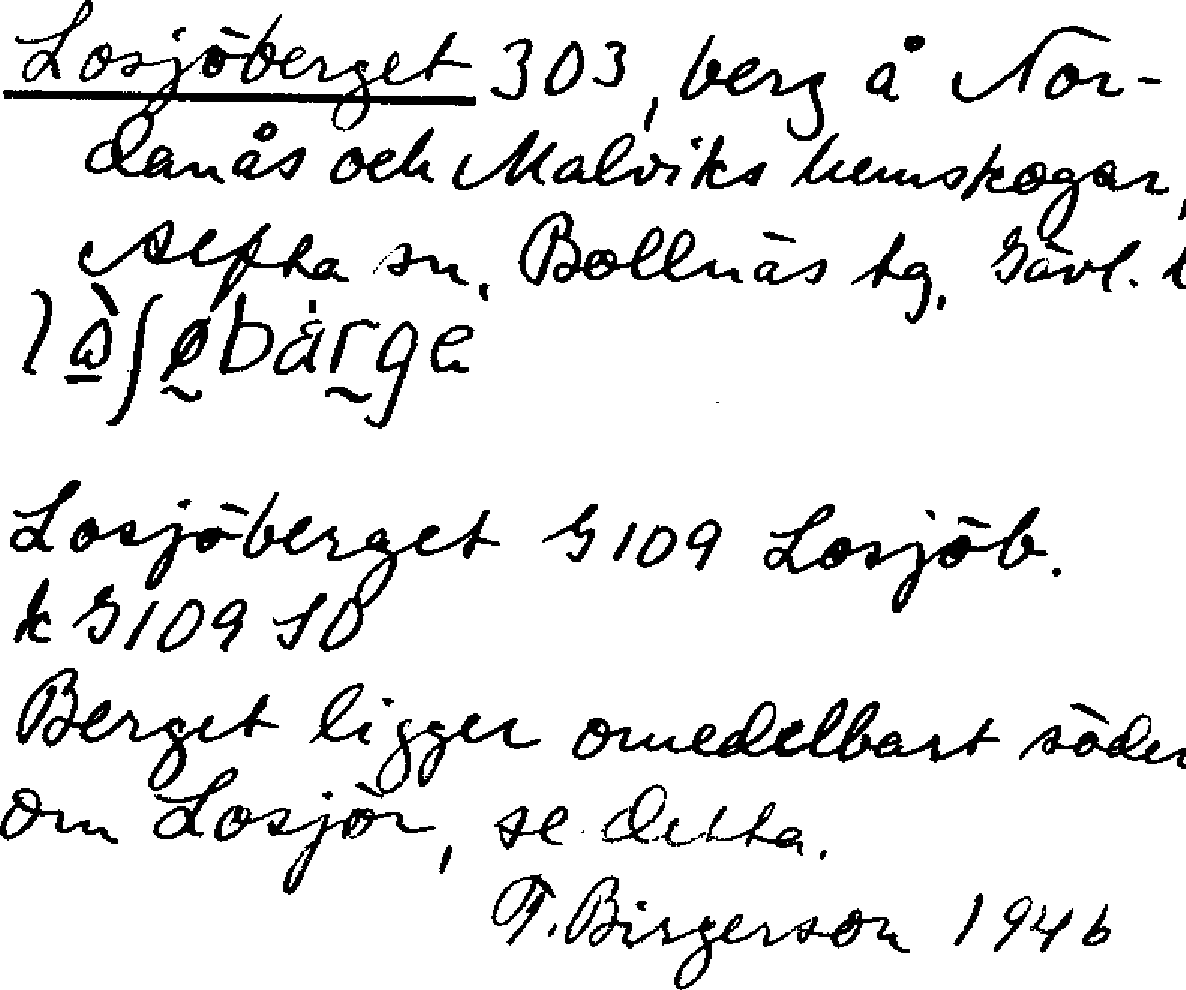 Losjöberget 303, berg å Nor-
danås och Malviks hemskogar,
Alfta sn, Bollnäs tg, Gävl. l
Losjöberget G109 Losjöb.
k G109 SO
Berget ligger omedelbart söder
om Losjön, se detta.
F. Birgerson 1946